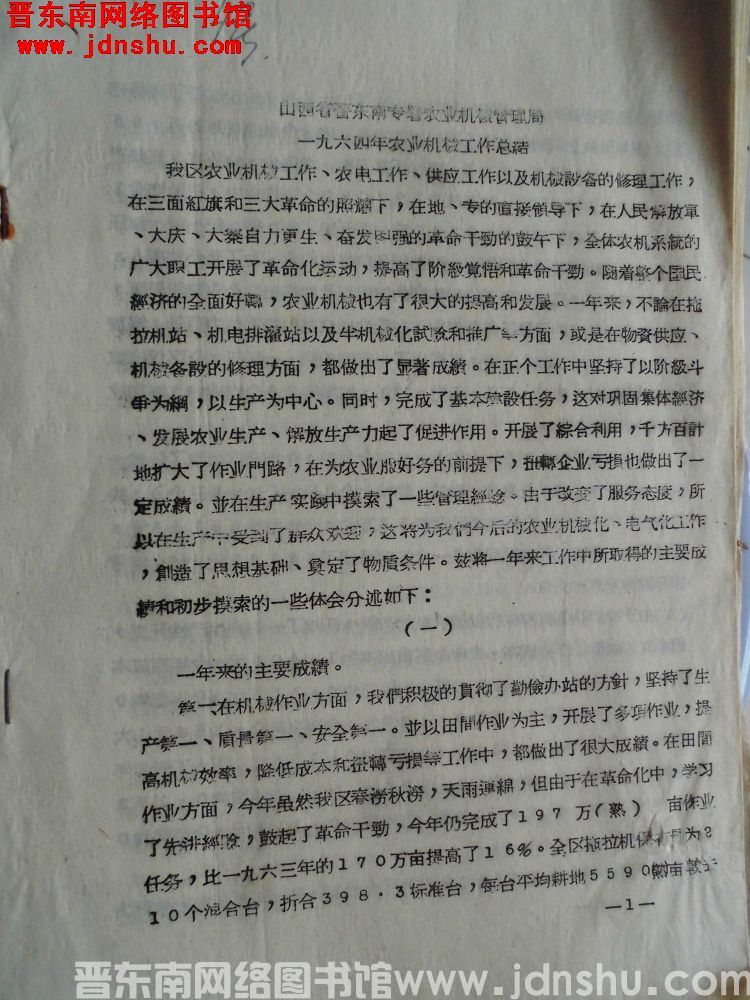 晋东南网络图书馆
www.jdnshu.com
山西省晋东南专署农业机械管理局
一九六四年农业机械工作总結
我区农业机械工作、农电工作、供应工作以及机械設备的修理工作，
在三面紅旗和三大革命的照耀下，在地、专的直接領导下，在人民解放軍
、大庆、大寨自力更生、奋发图强的革命干勁的鼓午下，全体农机系統的
广大职工开展了革命化运动，提高了阶級覚悟和革命干勁。随着整个国民
經济的全面好轉，农业机械也有了很大的提高和发展。一年来，不論在拖
拉机站、机电排灌站以及半机械化試驗和推广等方面，或是在物資供应、
机械备設的修理方面，都做出了显著成績。在正个工作中坚持了以阶級斗
争为綱，以生产为中心。同时，完成了基本建設任务，这对巩固集体經济
、发展农业生产、解放生产力起了促进作用。开展了綜合利用，千方百計
地扩大了作业門路，在为农业服好务的前提下，扭轉企业亏損也做出了一
定成績。並在生产实践中摸索了一些管理經驗。由于改变了服务态度，所
以在生产中受到了群众欢迎，这将为我們今后的农业机械化、电气化工作
，創造了思想基础、奠定了物质条件。兹将一年来工作中所取得的主要成
績和初步摸索的一些体会分述如下：
（一）
一年来的主要成績。
第一、在机械作业方面，我們积极的貫彻了勤儉办站的方針，坚持了生
产第一、质量第一、安全第一。並以田間作业为主，开展了多項作业，提
高机械效率，降低成本和扭轉亏損等工作中，都做出了很大成績。在田間
作业方面，今年虽然我区春澇秋澇，天雨連綿，但由于在革命化中，学习
了先进經驗，鼓起了革命干勁，今年仍完成了197万（熟）亩作业
任务，比一九六三年的170万亩提高了16%。全区拖拉机保有量为2
10个混合台，折合398.3标准台，每台平均耕地5590熟亩
—1—
晋东南网络图书馆www.jdnshu.com